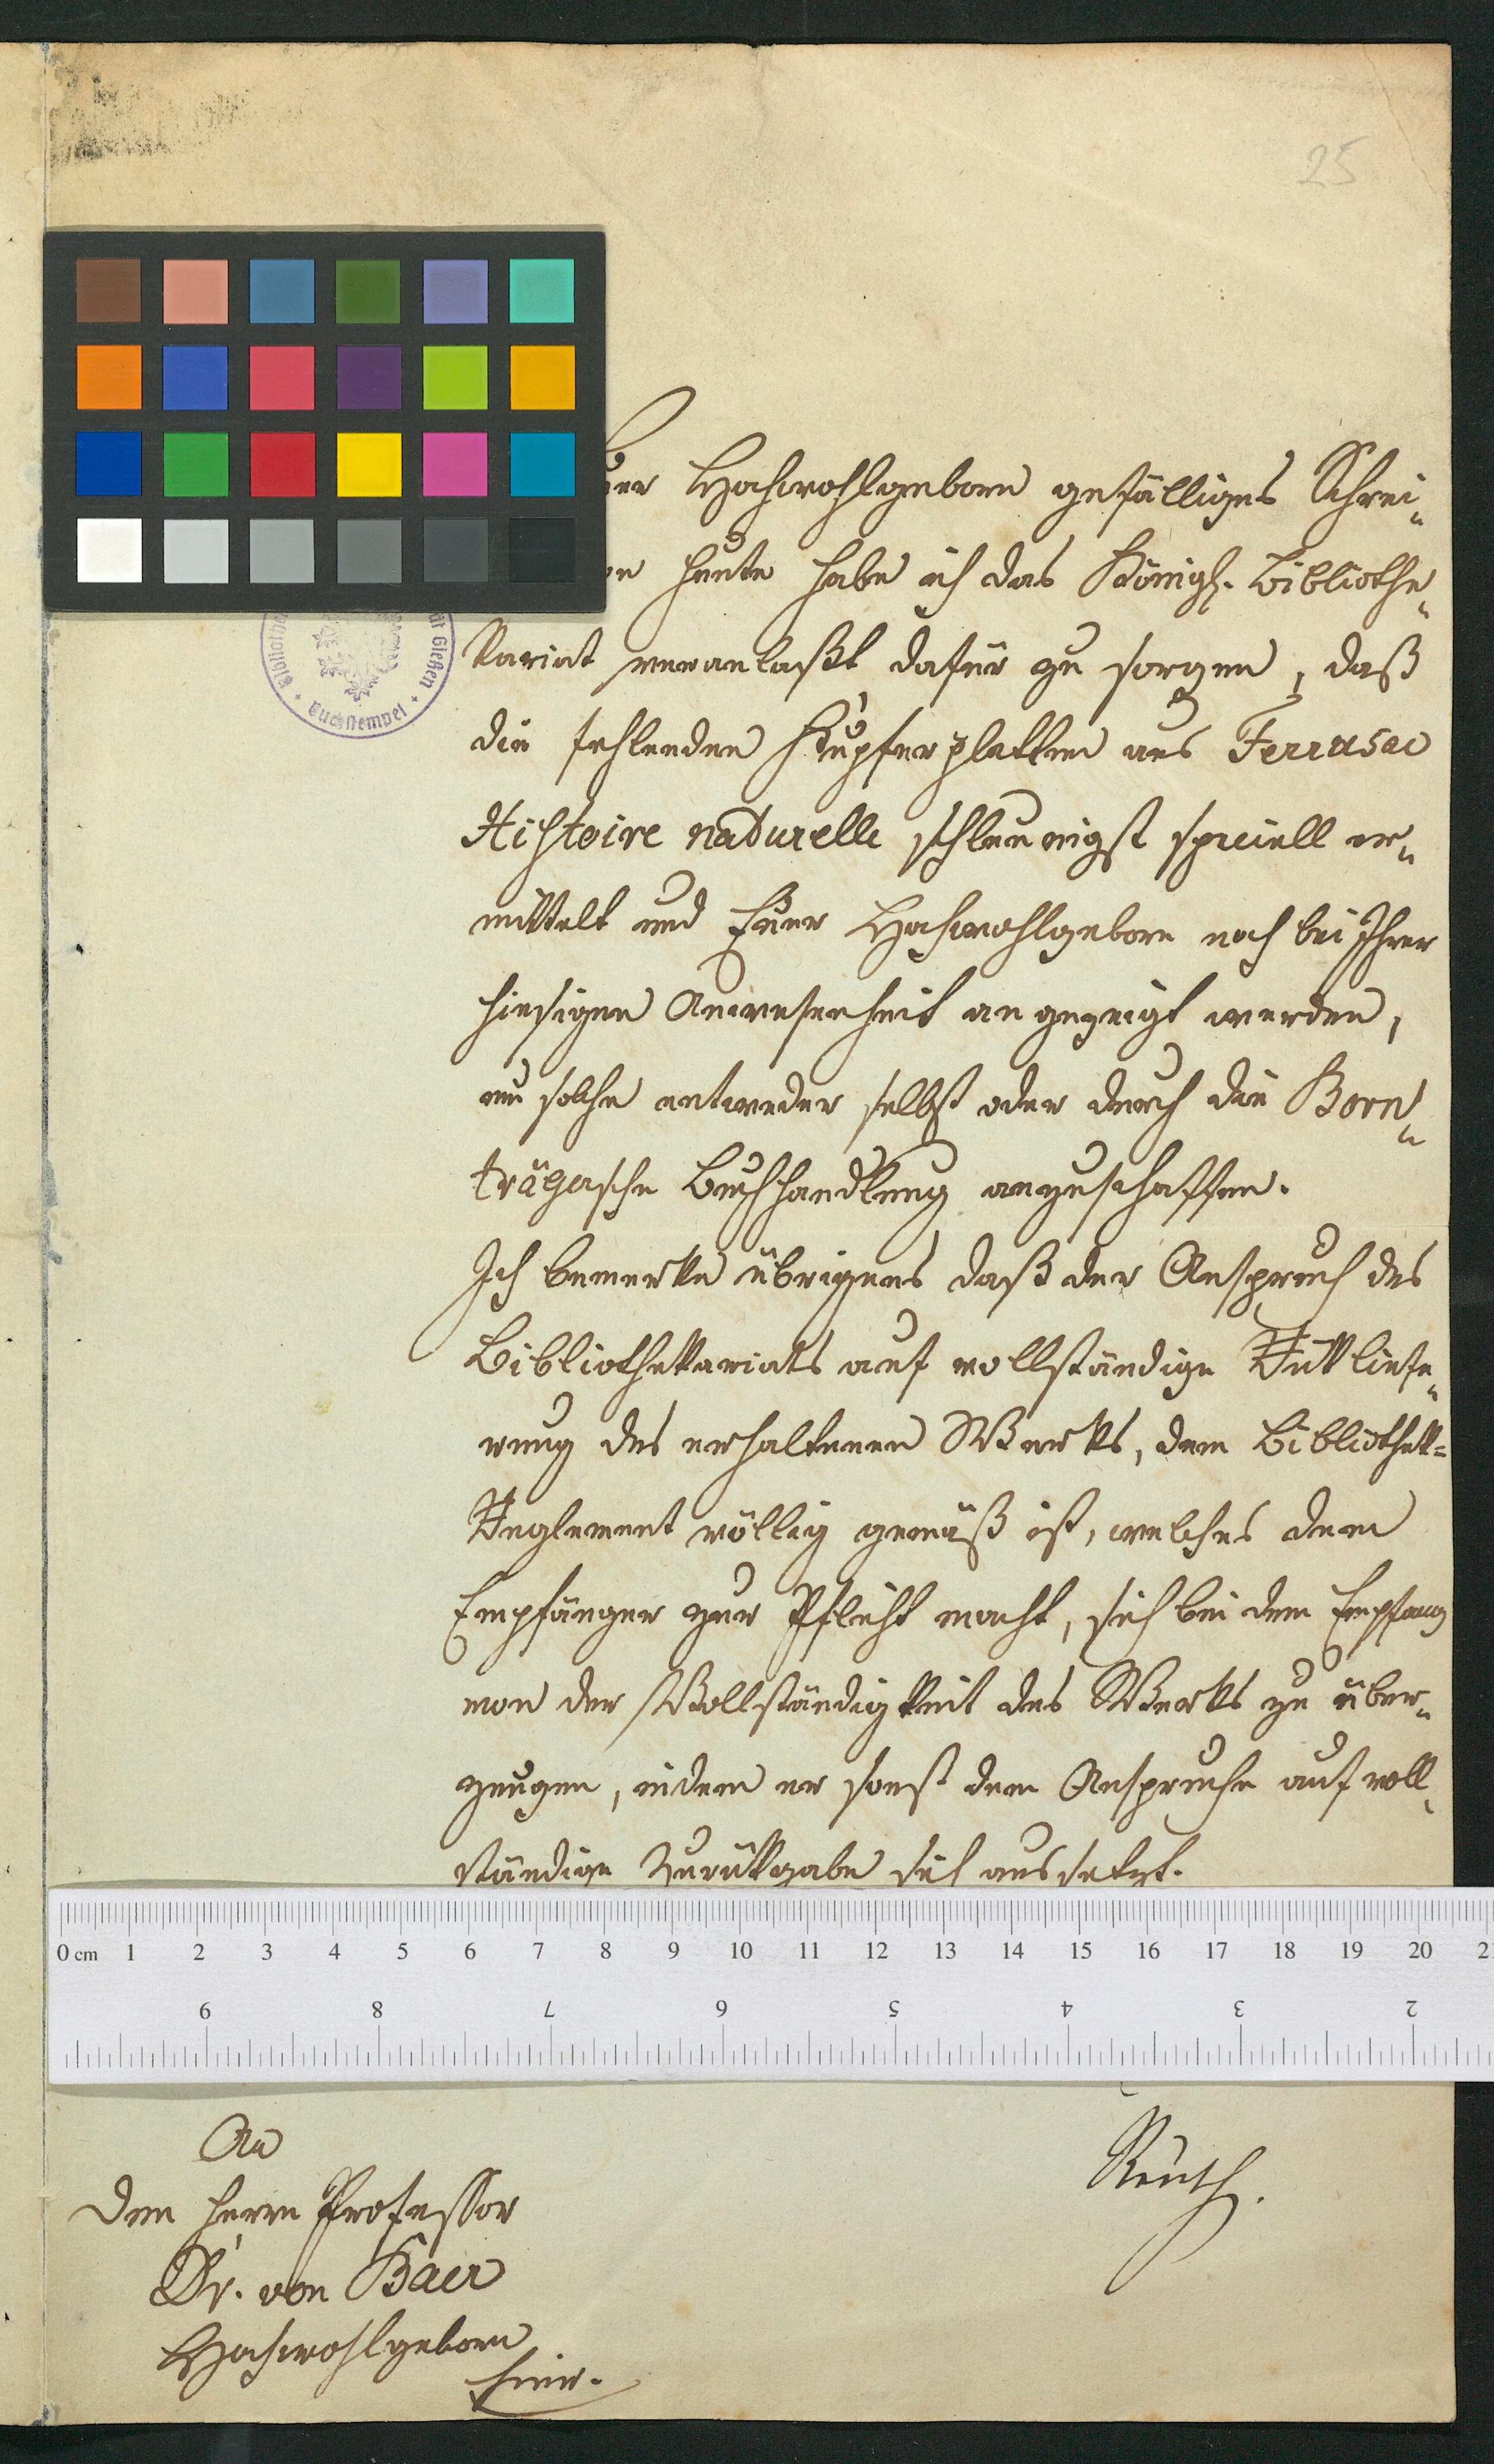 25
uer Hochwohlgeborn gefälliges Schrei„
on heute habe ich das Königl. Bibliothe„
kariat veranlaßt dafür zu sorgen, daß
die fehlenden Kupferplatten aus Ferrusac
Histoire naturelle schleunigst speciell er„
mittelt und Euer Hochwohlgeborn noch bei Ihrer
hiesigen Anwesenheit angezeigt werden,
um solche entweder selbst oder durch die Born„
trägersche Buchhandlung anzuschaffen.
Ich bemerke übrigens daß der Anspruch des
Bibliothekariats auf vollständige Rükliefe„
rung des erhaltenen Werks, dem Bibliothek=
Reglement völlig gemäß ist, welches dem
Empfänger zur Pflicht macht, sich bei dem Empfang
von der Vollständigkeit des Werks zu über„
zeugen, indem er sonst dem Anspruche auf voll„
ständige Zurükgabe sich aussetzt.
Gießen
Buchstempel
0 cm 1 2 3 4 5 6 7 8 9 10 11 12 13 14 15 16 17 18 19 20 2
9 8 7 6 5 4 3 2
Reusch.
An
den Herrn Professor
Dr. von Baer
Hochwohlgeborn
hier.